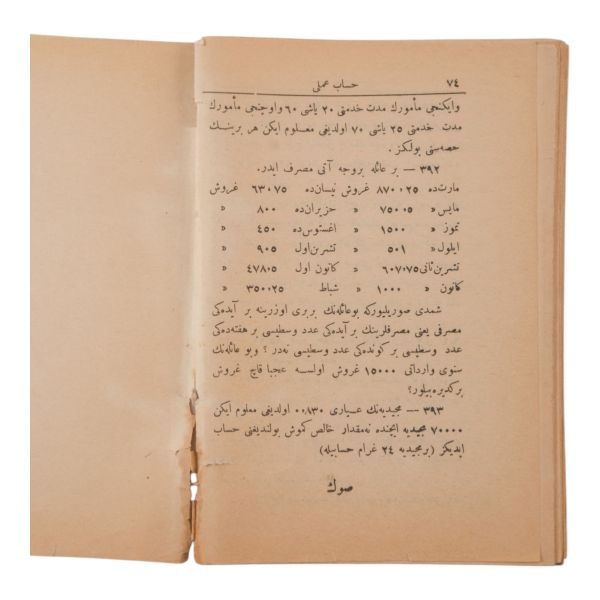 ٧٤ حساب عملی
وایكنجی مأمورك مدت خدمتی ٢٠ یاشی ٦٠ واوچنجی مأمورك
مدت خدمتی ٢٥ یاشی ٧٠ اولدیغی معلوم ایكن هر برینك
حصه‌سنی بولكز.
٣٩٢ — بر عائله بروجه آتی مصرف ایدر.
مارت‌ده ٨٧٠،٢٥ غروش نیسان‌ده ٦٣٠،٧٥ غروش
مایس « ٧٥٠،٥ « حزیران‌ده ٨٠٠ «
تموز « ١٥٠٠ « اغستوس‌ده ٤٥٠ «
ایلول « ٥٠١ « تشرین‌اول ٩٠٥ «
تشرین‌ثانی ٦٠٧،٧٥ « كانون اول ٤٧٨،٥ «
كانون « ١٠٠٠ « شباط ٣٥٠،٢٥ «
شمدی صوریلیوركه بوعائله‌نك بربری اوزرینه بر آیده‌كی
مصرفی یعنی مصرفلرینك بر آیده‌كی عدد وسطیسی بر هفته‌ده‌كی
عدد وسطیسی بر كونده‌كی عدد وسطیسی نه‌در ؟ وبو عائله‌نك
سنوی وارداتی ١٥٠٠٠ غروش اولسه عجبا قاچ غروش
بركدیره‌بیلور؟
٣٩٣ — مجیدیه‌نك عیاری ٠,٨٣٠ اولدیغی معلوم ایكن
٧٠٠٠٠ مجیدیه ایچنده نه‌مقدار خالص كموش بولندیغنی حساب
ایدیكز (برمجیدیه ٢٤ غرام حسابیله)
صوك